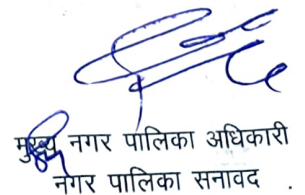 मुख्य नगर पालिका अधिकारी
नगर पालिका सनावद